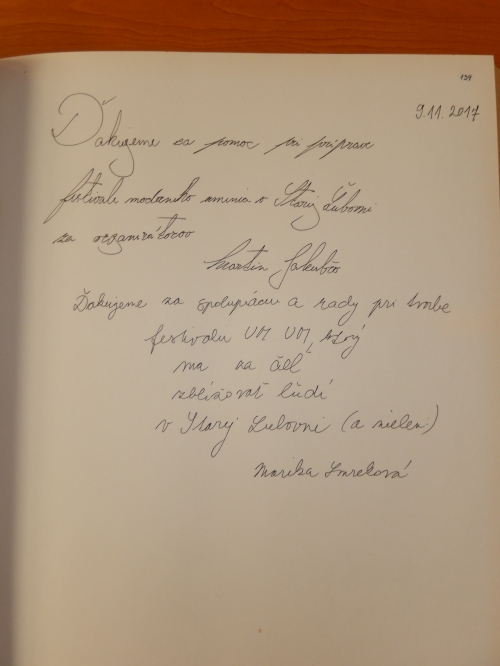 139
9.11.2017
Ďakujeme za pomoc pri príprave
festivalu moderného umenia v Starej Ľubovni
za organizátorov
Martin Jakubčo
Ďakujeme za spoluprácu a rady pri tvorbe
festivalu UM UM, ktorý
ma za cieľ
zbližovať ľudí
v Starej Lubovni (a nielen)
Marika Smreková